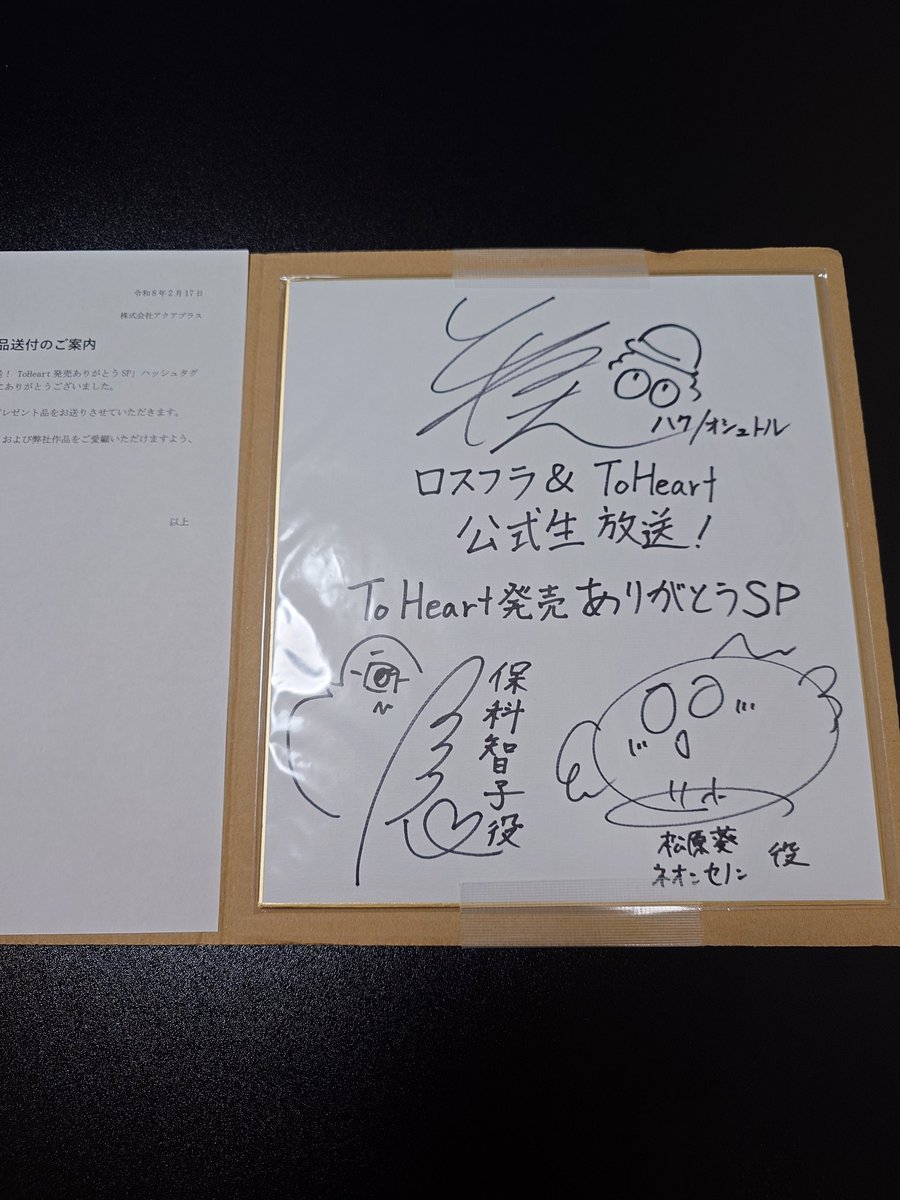 令和8年2月17日
株式会社アクアプラス
品送付のご案内
! ToHeart発売ありがとうSP」ハッシュタグ
にありがとうございました。
レゼント品をお送りさせていただきます。
および弊社作品をご愛顧いただけますよう、
以上
ハク/オシュトル
ロスフラ& ToHeart
公式生放送!
To Heart発売ありがとうSP
保科智子役
松原葵
ネオンセノン 役